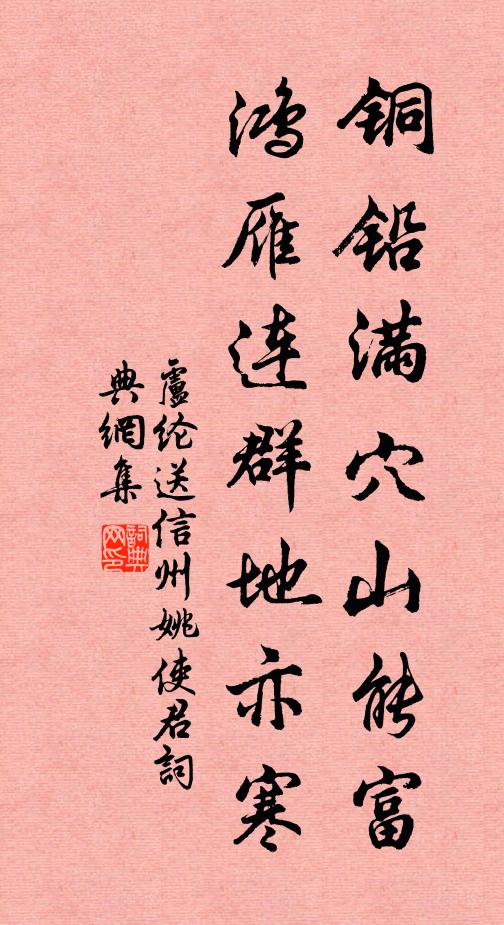 铜铅满穴山能富
鸿雁连群地亦寒
盧纶送信州姚使君詞
典網集
詞典网印